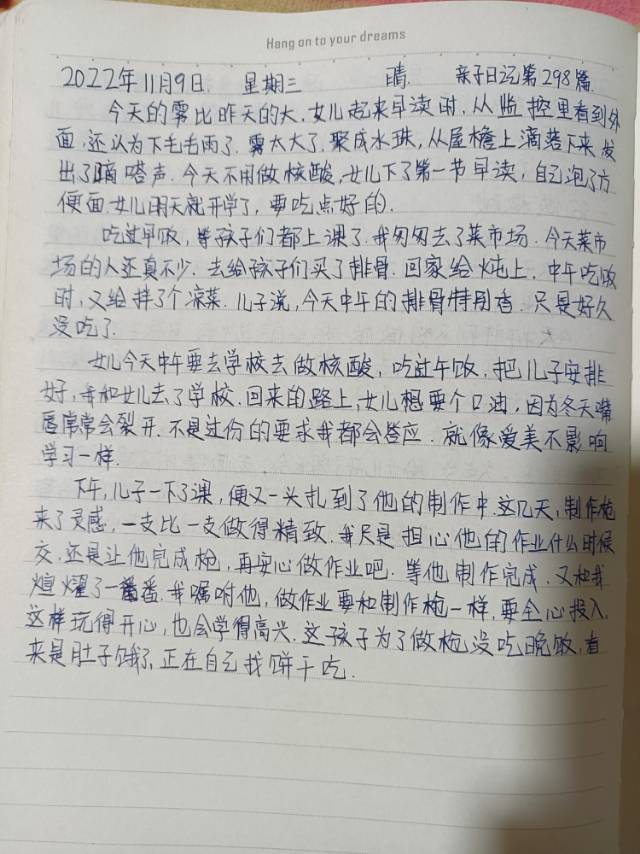 Hang on to your dreams
2022年11月9日. 星期三 晴. 亲子日记第298篇.
今天的雾比昨天的大,女儿起来早读时,从监控里看到外
面,还认为下毛毛雨了.雾太大了.聚成水珠,从屋檐上滴落下来发
出了嘀嗒声.今天不用做核酸,女儿下了第一节早读,自己泡了方
便面.女儿明天就开学了,要吃点好的.
吃过早饭,等孩子们都上课了.我匆匆去了菜市场.今天菜市
场的人还真不少.去给孩子们买了排骨.回家给炖上,中午吃饭
时,又给拌了个凉菜.儿子说,今天中午的排骨特别香.只是好久
没吃了.
女儿今天中午要去学校去做核酸,吃过午饭.把儿子安排
好,我和女儿去了学校.回来的路上,女儿想要个口油,因为冬天嘴
唇常常会裂开.不是过份的要求我都会答应.就像爱美不影响
学习一样.
下午,儿子一下了课,便又一头扎到了他的制作中.这几天,制作枪
来了灵感,一支比一支做得精致.我只是担心他的作业什么时候
交.还是让他完成枪,再安心做作业吧.等他制作完成.又和我
煊耀了一番.我嘱咐他,做作业要和制作枪一样,要全心投入,
这样玩得开心,也会学得高兴.这孩子为了做枪,没吃晚饭,看
来是肚子饿了,正在自己找饼干吃.